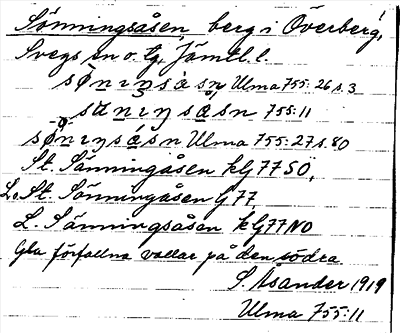 Sönningsåsen, berg i Överberg,
Svegs sn o. tg, Jämtl. l.
sönıŋsåsn Ulma 755:26 s.3
sänıŋsåsn 755:11
sönıŋsåsn Ulma 755:27 s.80
St. Sänningåsen kG77SÖ,
L. o. St. Sönningåsen G77,
L. Sänningsåsen kG77NO
Gla förfallna vallar på den södra
S. Åsander 1919
Ulma 755:11